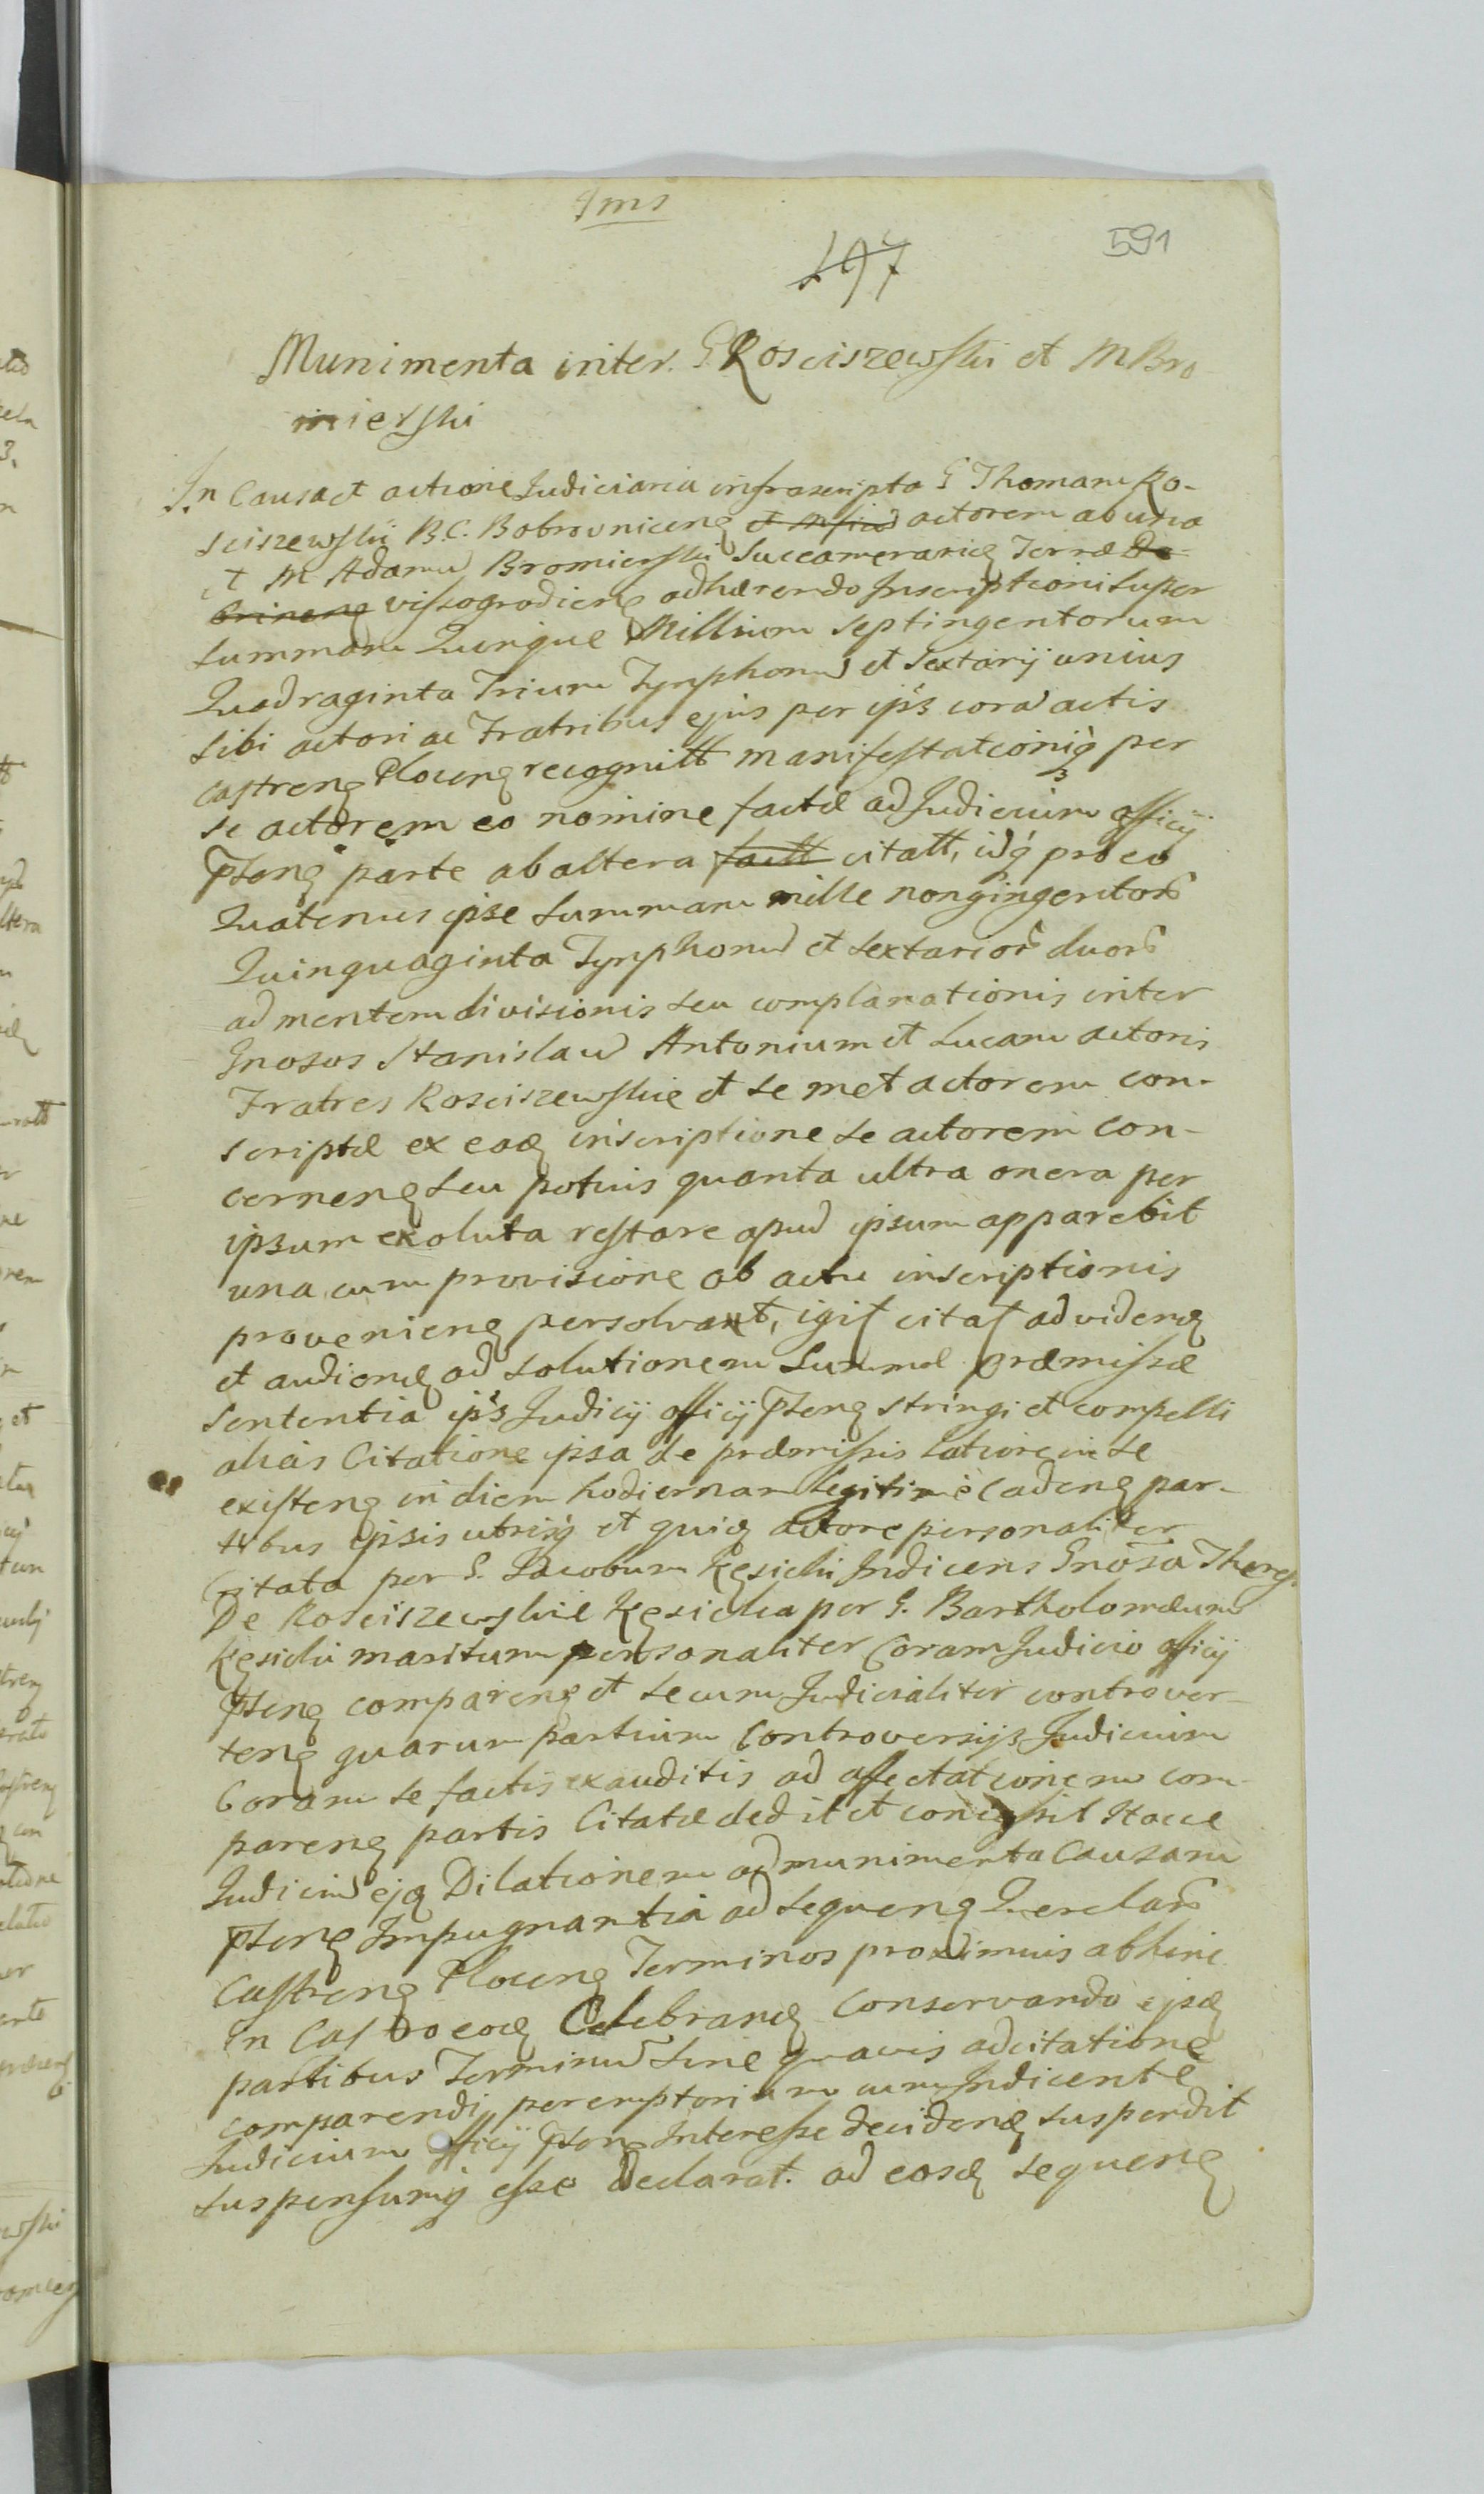 591
497
Munimenta inter G Rosciszewski et M Bro
mierski
In Causa et actione Judiciaria infrascripta G Thomam Ro-
sciszewski B.C. Bobrovniceng actorem ab una
et M Adamu Bromierski Succamerarie Terræ Do-
brineng vissogrodieng adhærendo Inscriptioni super
summam Quinque Millium Septingentorum
Quadraginta Trium Tynphonu et Sextarij unius
sibi actori ac Fratribus ejus per ips cora actis
Castreng Ploceng recognitt manifestationiq per
se actorem eo nomine factæ ad Judicium officij
Pteng parte ab altera factt citatt, idq pro eo
Quatenus ipse summam mille nongingentor
Quinquaginta Tynphonu et sextarior duor
ad mentem divisionis seu complanationis inter
Gnosos Stanislau Antonium et Lucam actoris
Fratres Rosciszewskie et se met actorem con-
scriptæ ex eaq inscriptione se actorem con-
cerneng seu potius quanta ultra onera per
ipsum exoluta restare apud ipsum apparebit
una cum provisione ab actu inscriptionis
provenieng persolvant, igit citat ad videnq
et audienq ad solutionem Summæ præmissæ
sententia ips Judicij officij Pteng stringi et compelli
alias Citatione ipsa de præmissis latiore in se
existeng in diem hodiernam legitime Cadeng par-
tibus ipsis utrisq et quiq actore personaliter
Citata per G. Jacobum Kęsicki Judicens Gnosa Theres
De Rosciszewskie Kęsicka per G. Bartholomæum
Kęsicki maritum personaliter Coram Judicio officij
Pteng compareng et secum Judicialiter controver-
teng quarum partium Controversijs Judicium
Coram se factis exauditis ad affectationem com-
pareng partis Citatæ dedit et concessit Hocce
Judiciu ejq Dilationem ad munimenta Causam
Pteng Impugnantia ad sequeng Querelar
Castreng Ploceng Terminos proximius abhinc
in Castro eoq Celebranq Conservando ejsq
partibus Terminu sine quavis adcitatione
comparendi peremptorium cum Judicente
Judicium officij Pteng Interesse decidenq suspendit
suspensumq esse declarat. ad eosq sequeng